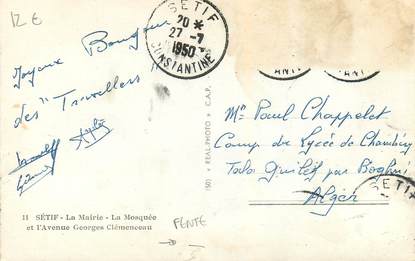 12 €
SÉTIF
20 *
27 - 7
1950
CONSTANTINE
Joyeux Bonjour
des "Travellers"
Mr Paul Chappelet
Camp du Lycée de Chambéry
Tala Guilef par Boghni
Alger
SETIF
1501 « REAL-PHOTO » C.A.P.
11 SÉTIF - La Mairie - La Mosquée
et l'Avenue Georges Clémenceau
FENTE